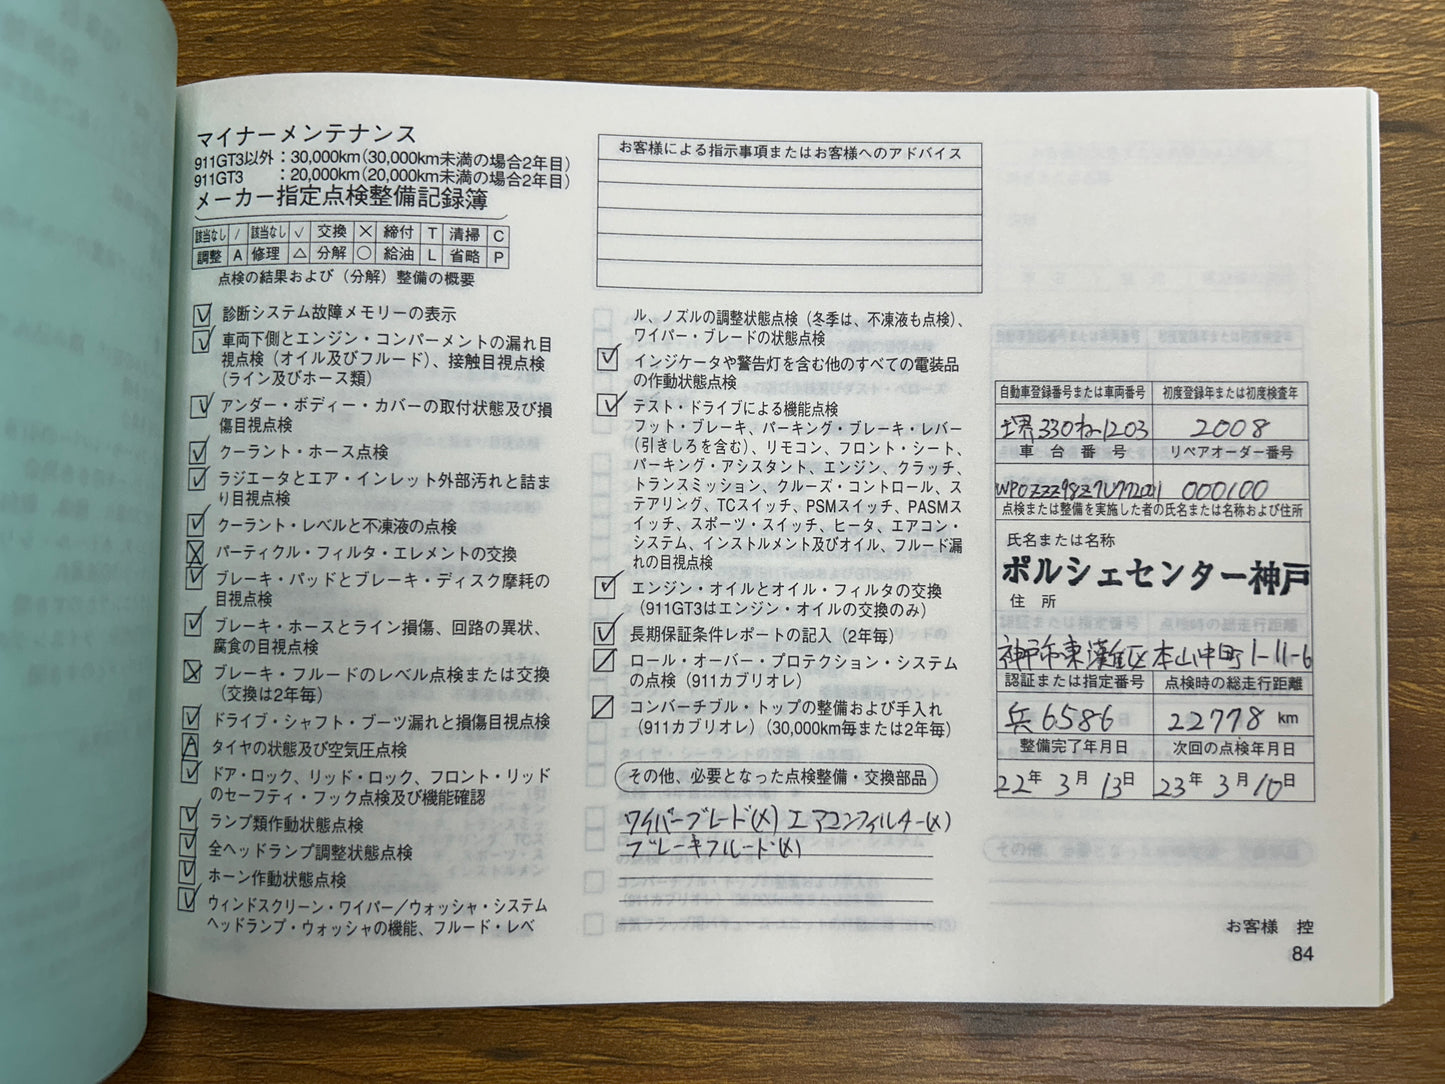 マイナーメンテナンス
911GT3以外：30,000km(30,000km未満の場合2年目)
911GT3　　：20,000km(20,000km未満の場合2年目)
メーカー指定点検整備記録簿
該当なし / 該当なし ✓ 交換 × 締付 T 清掃 C
調整 A 修理 △ 分解 ○ 給油 L 省略 P
点検の結果および（分解）整備の概要
診断システム故障メモリーの表示
車両下側とエンジン・コンパーメントの漏れ目
視点検（オイル及びフルード）、接触目視点検
（ライン及びホース類）
アンダー・ボディー・カバーの取付状態及び損
傷目視点検
クーラント・ホース点検
ラジエータとエア・インレット外部汚れと詰ま
り目視点検
クーラント・レベルと不凍液の点検
パーティクル・フィルタ・エレメントの交換
ブレーキ・パッドとブレーキ・ディスク摩耗の
目視点検
ブレーキ・ホースとライン損傷、回路の異状、
腐食の目視点検
ブレーキ・フルードのレベル点検または交換
（交換は2年毎）
ドライブ・シャフト・ブーツ漏れと損傷目視点検
タイヤの状態及び空気圧点検
ドア・ロック、リッド・ロック、フロント・リッド
のセーフティ・フック点検及び機能確認
ランプ類作動状態点検
全ヘッドランプ調整状態点検
ホーン作動状態点検
ウィンドスクリーン・ワイパー／ウォッシャ・システム
ヘッドランプ・ウォッシャの機能、フルード・レベ
お客様による指示事項またはお客様へのアドバイス
ル、ノズルの調整状態点検（冬季は、不凍液も点検）、
ワイパー・ブレードの状態点検
インジケータや警告灯を含む他のすべての電装品
の作動状態点検
テスト・ドライブによる機能点検
フット・ブレーキ、パーキング・ブレーキ・レバー
（引きしろを含む）、リモコン、フロント・シート、
パーキング・アシスタント、エンジン、クラッチ、
トランスミッション、クルーズ・コントロール、ス
テアリング、TCスイッチ、PSMスイッチ、PASMス
イッチ、スポーツ・スイッチ、ヒータ、エアコン・
システム、インストルメント及びオイル、フルード漏
れの目視点検
エンジン・オイルとオイル・フィルタの交換
（911GT3はエンジン・オイルの交換のみ）
長期保証条件レポートの記入（2年毎）
ロール・オーバー・プロテクション・システム
の点検（911カブリオレ）
コンバーチブル・トップの整備および手入れ
（911カブリオレ）（30,000km毎または2年毎）
その他、必要となった点検整備・交換部品
ワイパーブレード(×) エアコンフィルター(×)
ブレーキフルード(×)
自動車登録番号または車両番号 初度登録年または初度検査年
堺330ね1203 2008
車台番号 リペアオーダー番号
000100
点検または整備を実施した者の氏名または名称および住所
氏名または名称
ポルシェセンター神戸
住　所
神戸市東灘区本山中町1-11-6
認証または指定番号 点検時の総走行距離
兵6586 22778 km
整備完了年月日 次回の点検年月日
22年 3月 13日 23年 3月 10日
お客様　控
84